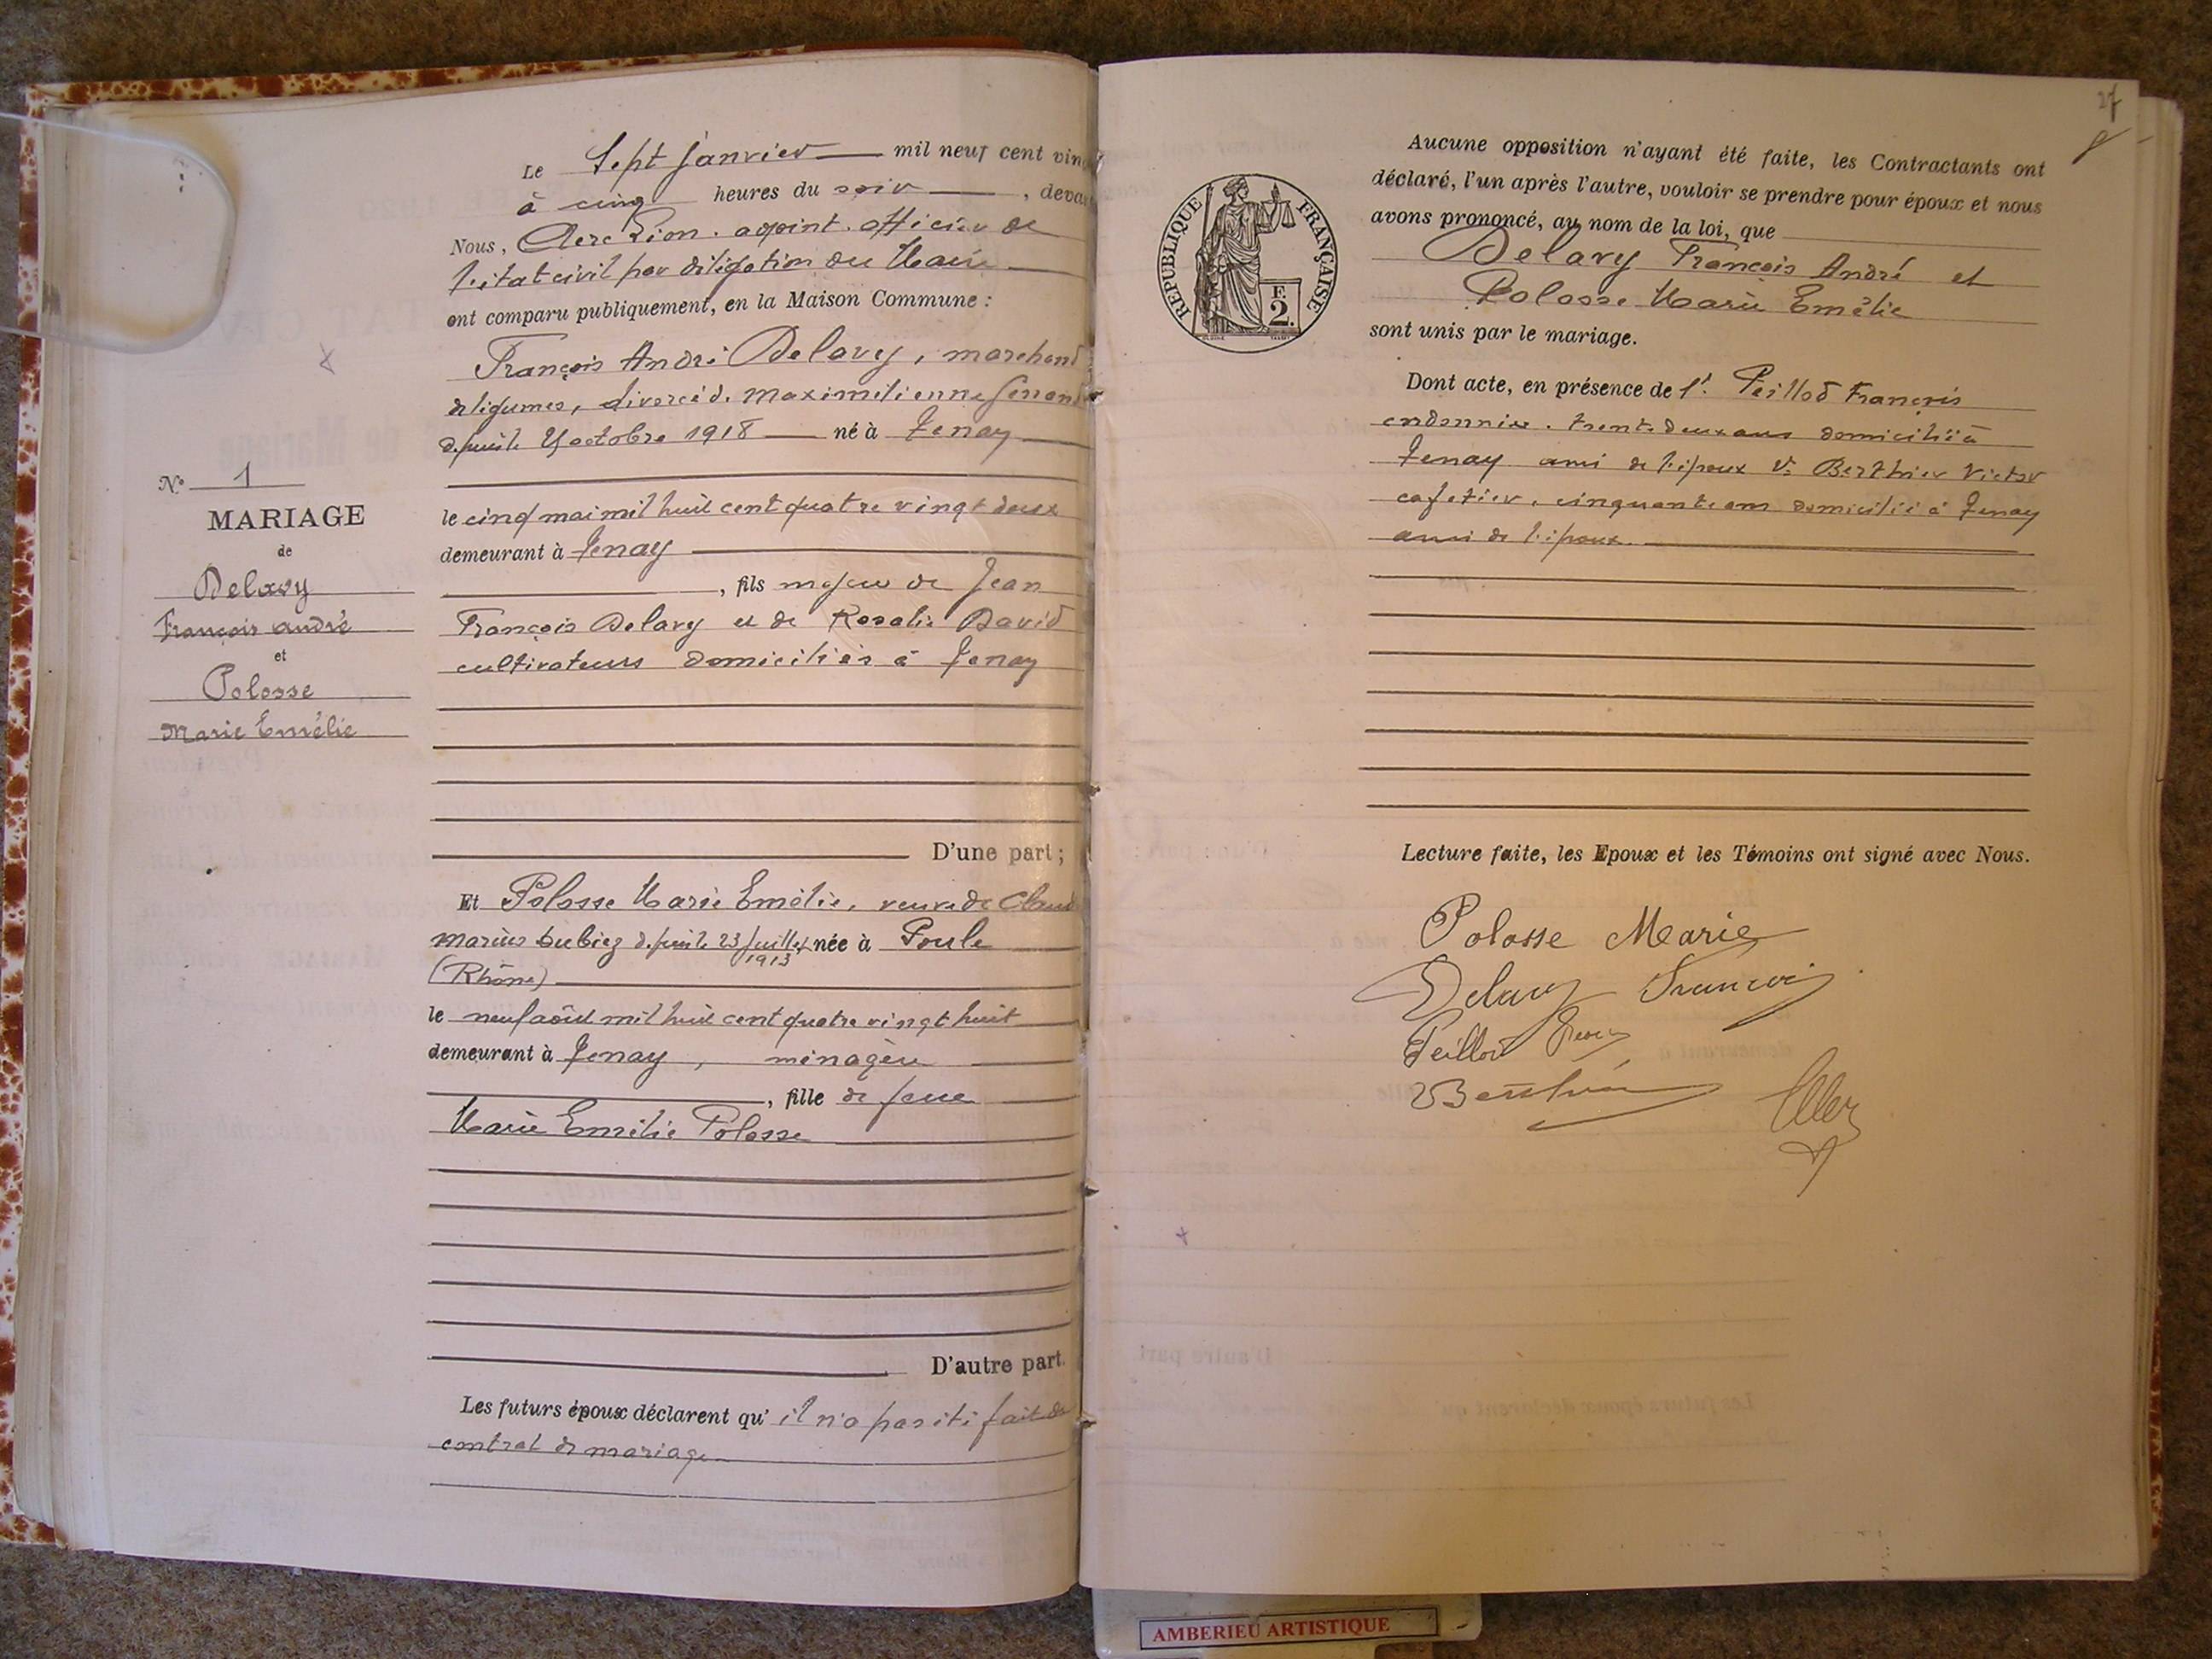 Le Sept janvier mil neuf cent vin
à cinq heures du soir, devan
Nous, Clerc Léon. adjoint. officier de
l'état civil par délégation du Maire
ont comparu publiquement, en la Maison Commune :
François André Delavy, marchand
de légumes, divorcé de Maximilienne
depuis le octobre 1918 né à Tenay
le cinq mai mil huit cent quatre vingt deux
demeurant à Tenay
, fils majeur de Jean
François Delavy et de Rosalie David
cultivateurs domiciliés à Tenay
D'une part ;
Et Polosse Marie Emélie, veuve de Claud
Marius Dubiez depuis le 23 juillet 1913 née à Poule
(Rhône)
le neuf août mil huit cent quatre vingt huit
demeurant à Tenay, ménagère
, fille de feue
Marie Emélie Polosse
D'autre part.
Les futurs époux déclarent qu' il n'a pas été fait de
contrat de mariage
No 1
MARIAGE
de
Delavy
François André
et
Polosse
Marie Emélie
27
REPUBLIQUE FRANÇAISE
F.
2.
Aucune opposition n'ayant été faite, les Contractants ont
déclaré, l'un après l'autre, vouloir se prendre pour époux et nous
avons prononcé, au nom de la loi, que
Delavy François André et
Polosse Marie Emélie
sont unis par le mariage.
Dont acte, en présence de 1° Peillod François
cordonnier. trente deux ans domicilié à
Tenay ami de l'époux 2° Berthier Victor
cafetier, cinquante ans domicilié à Tenay
ami de l'époux.
Lecture faite, les Epoux et les Témoins ont signé avec Nous.
Polosse Marie
Delavy François
Peillod
Berthier
Clerc
AMBERIEU ARTISTIQUE